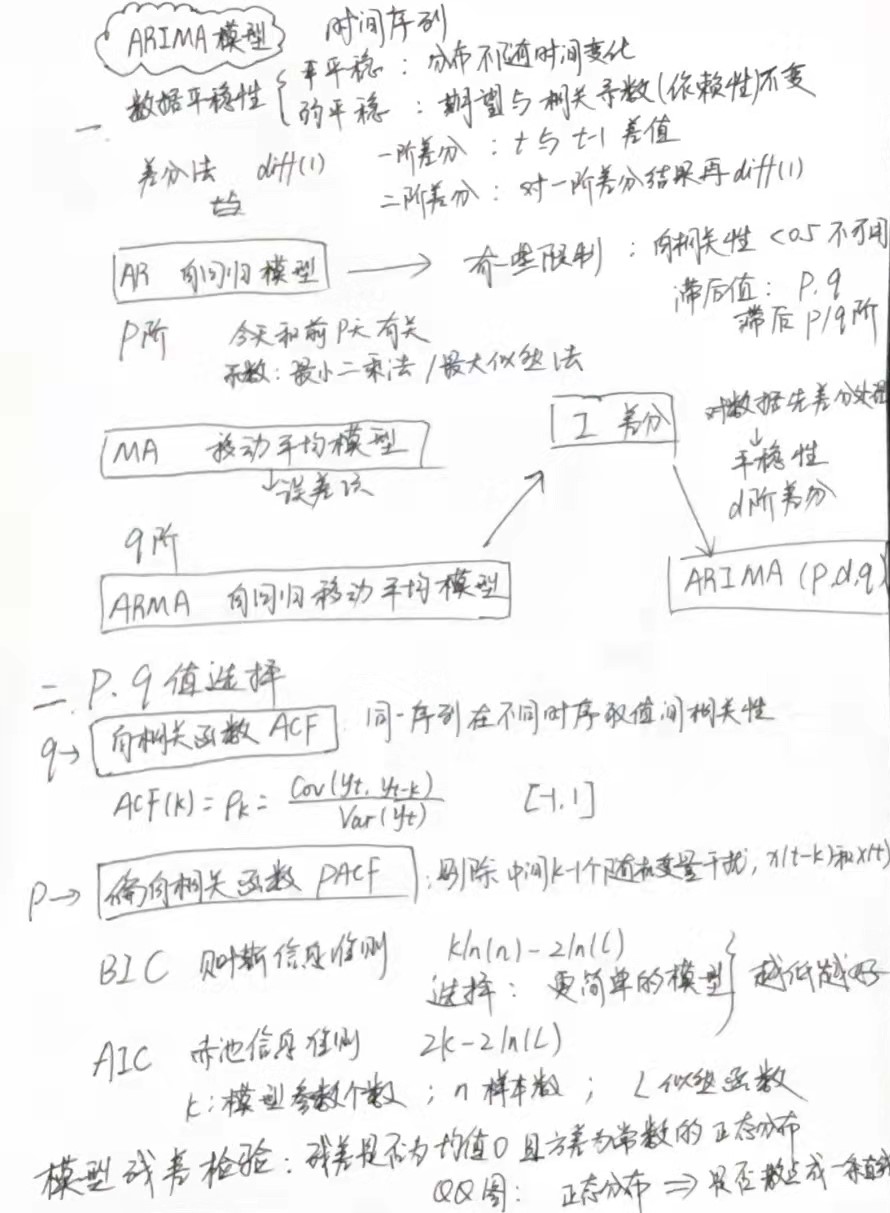 ARIMA模型 时间序列
一 数据平稳性
平平稳：分布不随时间变化
弱平稳：期望与相关系数(依赖性)不变
差分法 diff(1) 一阶差分：t与t-1差值
二阶差分：对一阶差分结果再diff(1)
AR 自回归模型 → 有一些限制：自相关性<0.5不可用
滞后值：p.q
滞后p/q阶
P阶 今天和前P天有关
系数：最小二乘法/最大似然法
MA 移动平均模型
↓误差项
I 差分
对数据先差分处理
↓
平稳性
d阶差分
q阶
ARMA 自回归移动平均模型
ARIMA (p,d,q)
二. P.q值选择
q→ 自相关函数ACF 同一序列在不同时序取值间相关性
ACF(k)=ρk= Cov(yt, yt-k) / Var(yt) [-1,1]
p→ 偏自相关函数PACF：剔除中间k-1个随机变量干扰，x(t-k)和x(t)
BIC 贝叶斯信息准则 kln(n)-2ln(L)
选择：更简单的模型 } 越低越好
AIC 赤池信息准则 2k-2ln(L)
k:模型参数个数；n样本数；L似然函数
模型残差检验：残差是否为均值0且方差为常数的正态分布
QQ图：正态分布⇒是否散点成一条直线